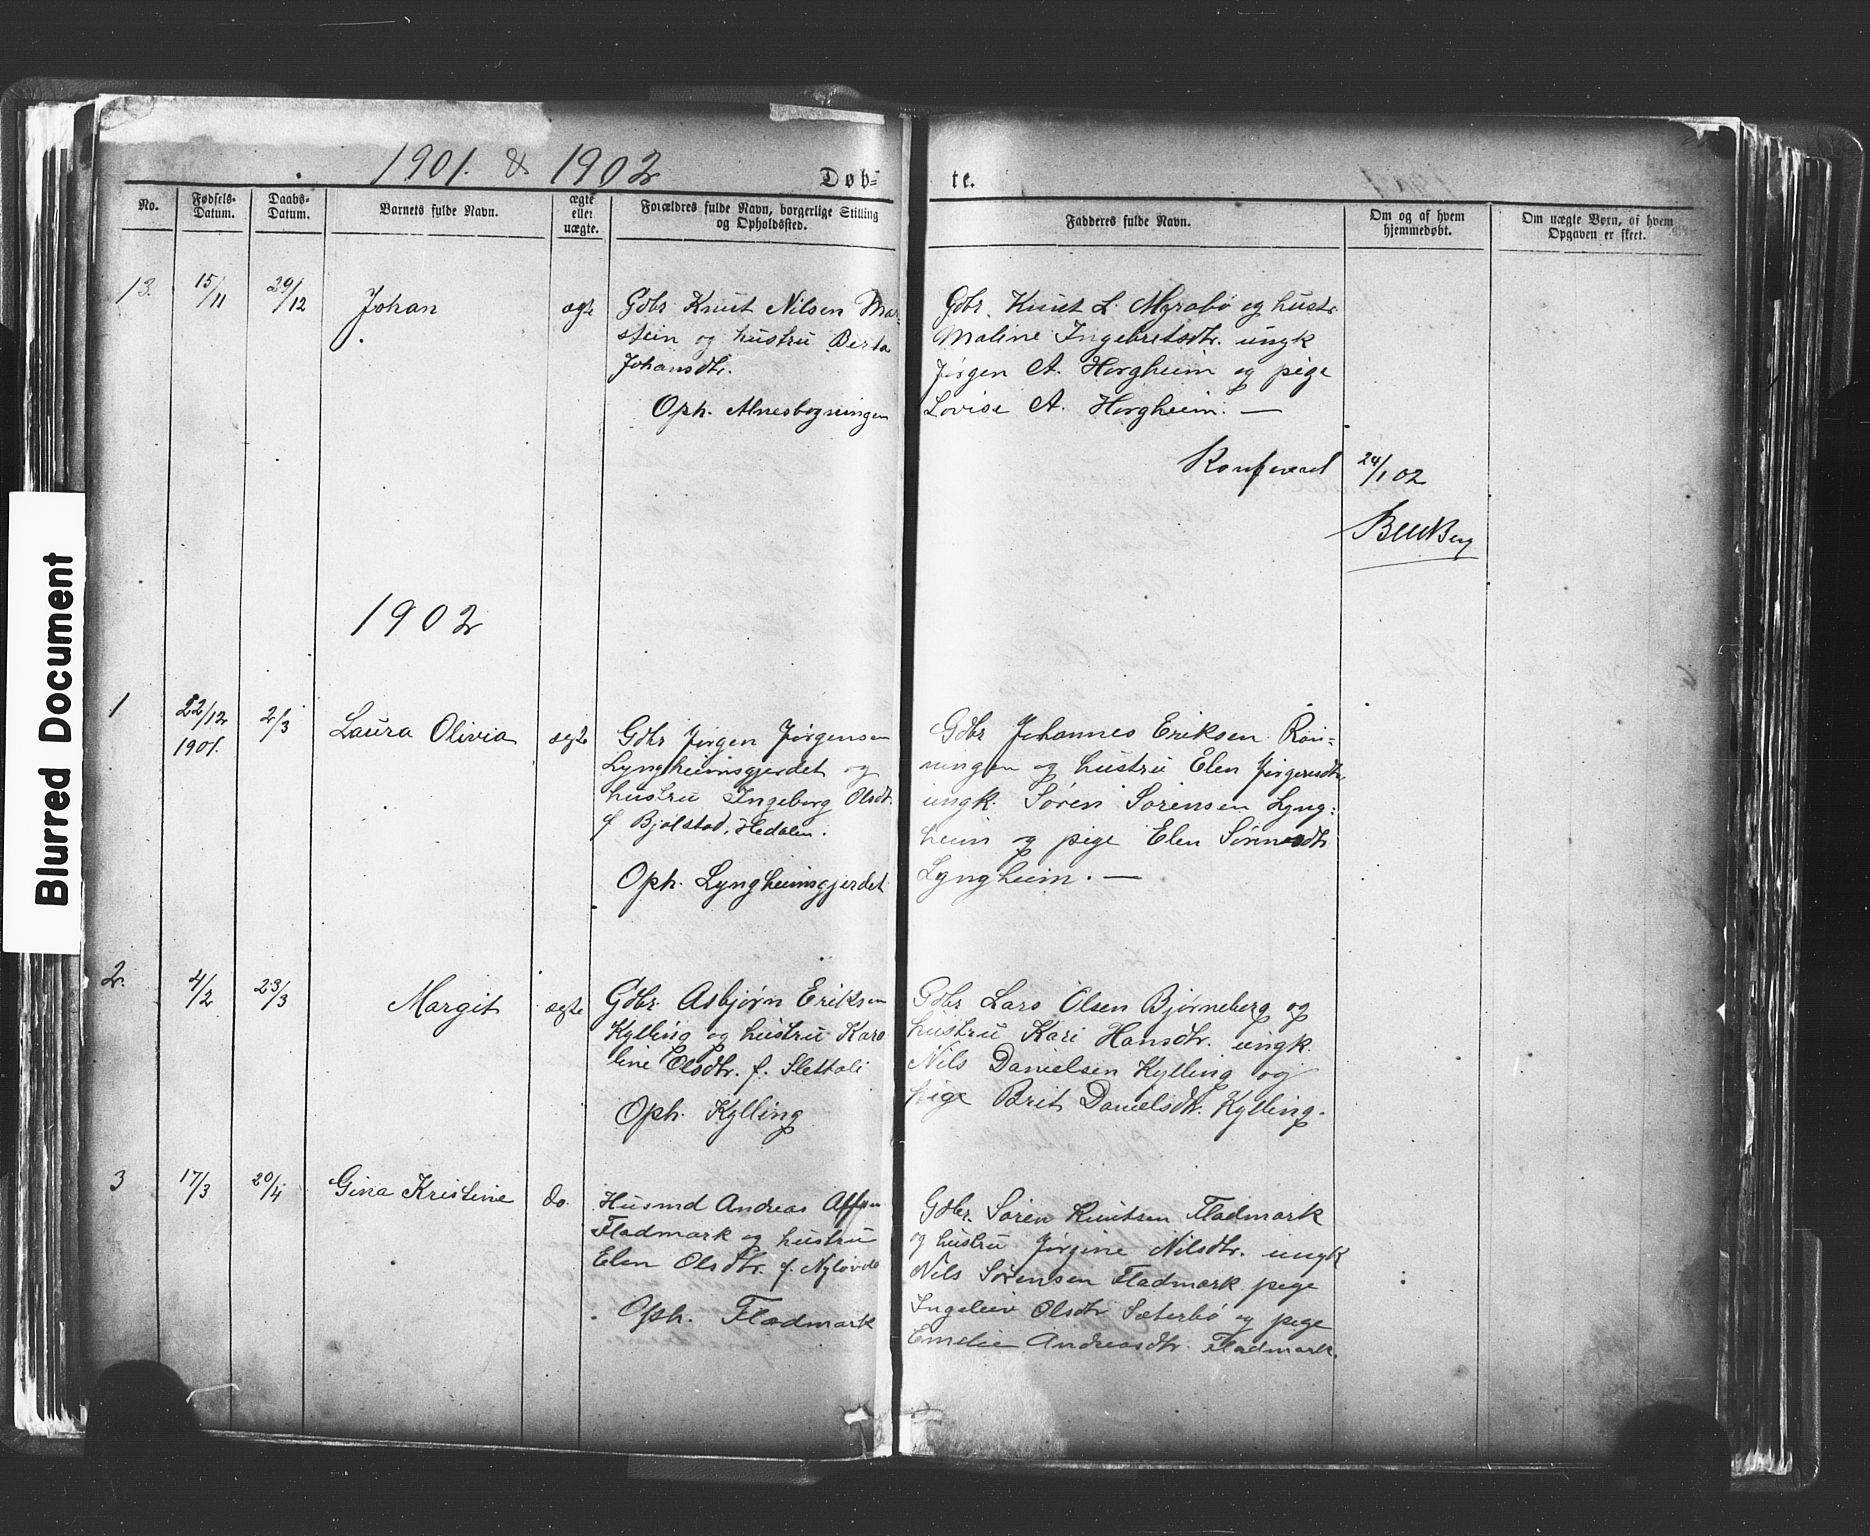 Blurred Document
1901. & 1902
Døb=
te.
No.
Fødsels-
Datum.
Daabs-
Datum.
Barnets fulde Navn.
ægte
eller
uægte.
Forældres fulde Navn, borgerlige Stilling
og Opholdssted.
Fadderes fulde Navn.
Om og af hvem
hjemmedøbt.
Om uægte Børn, af hvem
Opgaven er skeet.
13.
15/11
29/12
Johan
ægte
Gdbr Knut Nilsen Mar-
stein og hustru Berta
Johansdtr.
Oph. Alnesbogningen
Gdbr. Knut L. Myrabø og hustr
Maline Ingebretsdtr. ungk
Jørgen A. Horgheim og pige
Lovise A. Horgheim. —
Konfereret 24/1 02
1902
1
22/12
1901.
2/3
Laura Olivia
ægte
Gdbr Jørgen Jørgensen
Lyngheimsgjerdet og
hustru Ingeborg Olsdt.
f Bjølstad, Hedalen.
Oph. Lyngheimsgjerdet
Gdbr Johannes Eriksen Røn-
ningen og hustru Elen Jørgensdtr.
ungk. Søren Sørensen Lyng:
heim og pige Elen Sørensdtr
Lyngheim. —
2.
4/2
23/3
Margit
ægte
Gdbr. Asbjørn Eriksen
Kylling og hustru Karo
line Olsdtr. f. Slettali
Oph. Kylling
Gdbr Lars Olsen Bjørneberg og
hustru Kari Hansdtr. ungk.
Nils Danielsen Kylling og
pige Brit Danielsdtr. Kylling.
3
17/3
20/4
Gina Kristine
do.
Husmd Andreas
Fladmark og hustru
Elen Olsdtr. f. Nyløvdo
Oph. Fladmark
Gdbr. Søren Knutsen Fladmark
og hustru Jørgine Nilsdtr. ungk
Nils Sørensen Fladmark pige
Ingeleiv Olsdtr Sæterbø og pige
Emelie Andreasdtr. Fladmark.